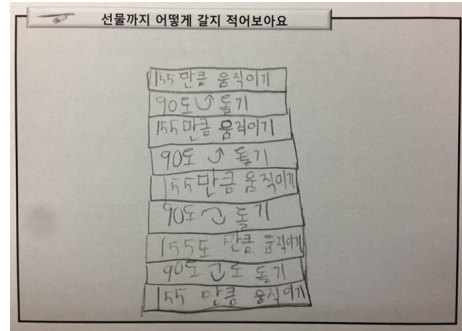 선물까지 어떻게 갈지 적어보아요
155만큼 움직이기
90도 돌기
155만큼 움직이기
90도 돌기
155만큼 움직이기
90도 돌기
155도 만큼 움직이기
90도 도 돌기
155 만큼 움직이기